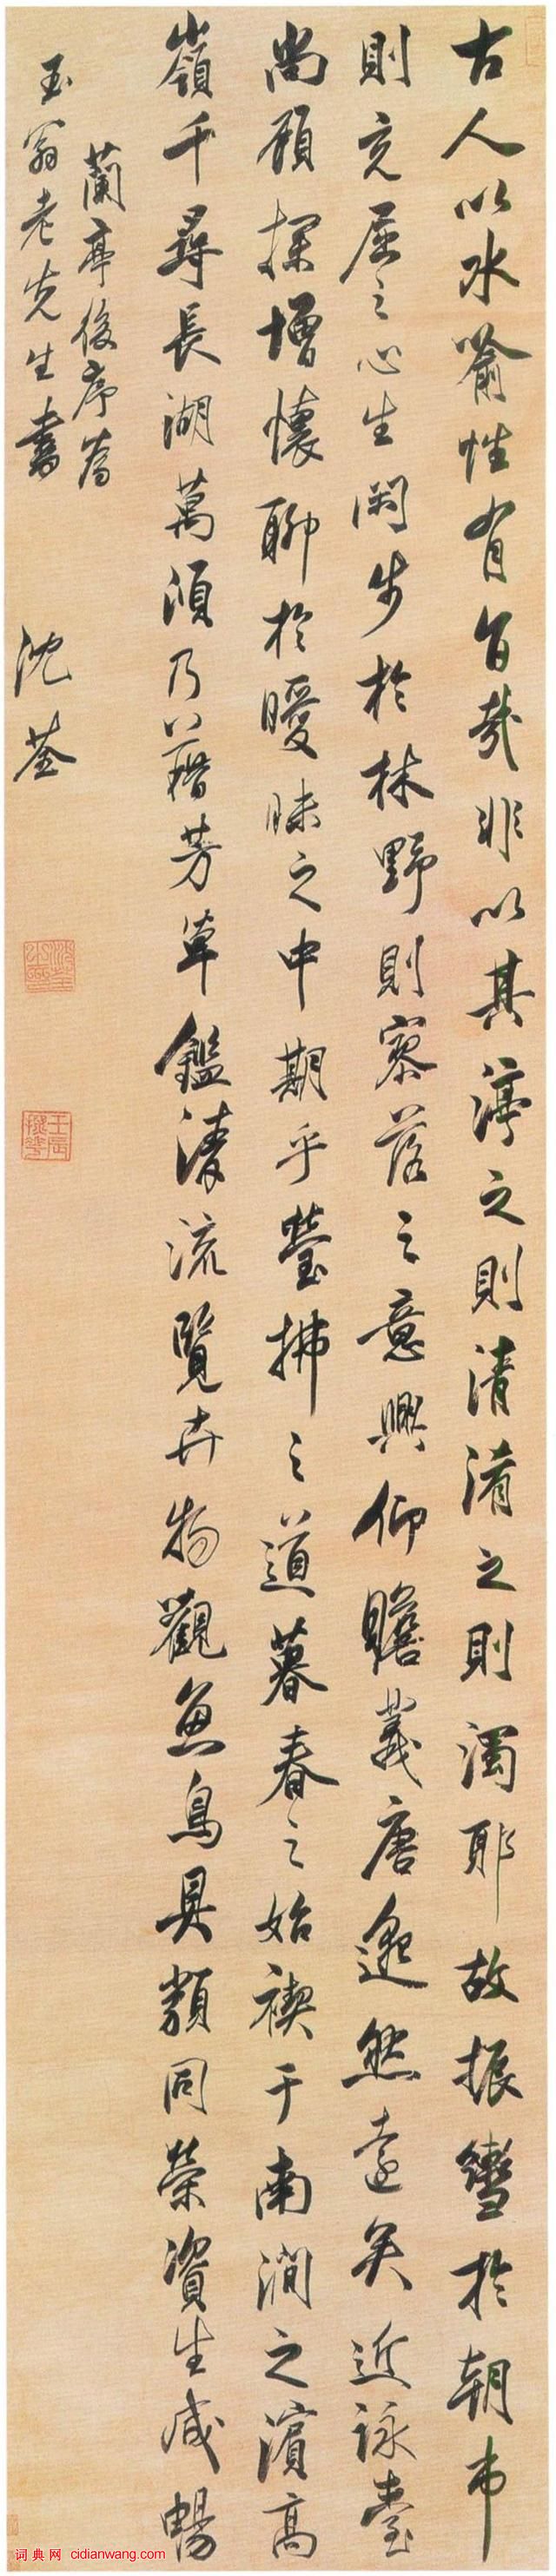 古人以水喻性有旨哉非以其渟之則清淆之則濁耶故振轡於朝市
則充屈之心生閑步於林野則寥落之意興仰瞻羲唐邈然遠矣近詠臺
尚顧探增懷聊於曖昧之中期乎瑩拂之道暮春之始禊于南澗之濱高
嶺千尋長湖萬頃乃藉芳草鑑清流覽卉物觀魚鳥具類同榮資生咸暢
蘭亭後序為
玉翁老先生書
沈荃
沈荃之印
壬辰探花
词典网 cidianwang.com